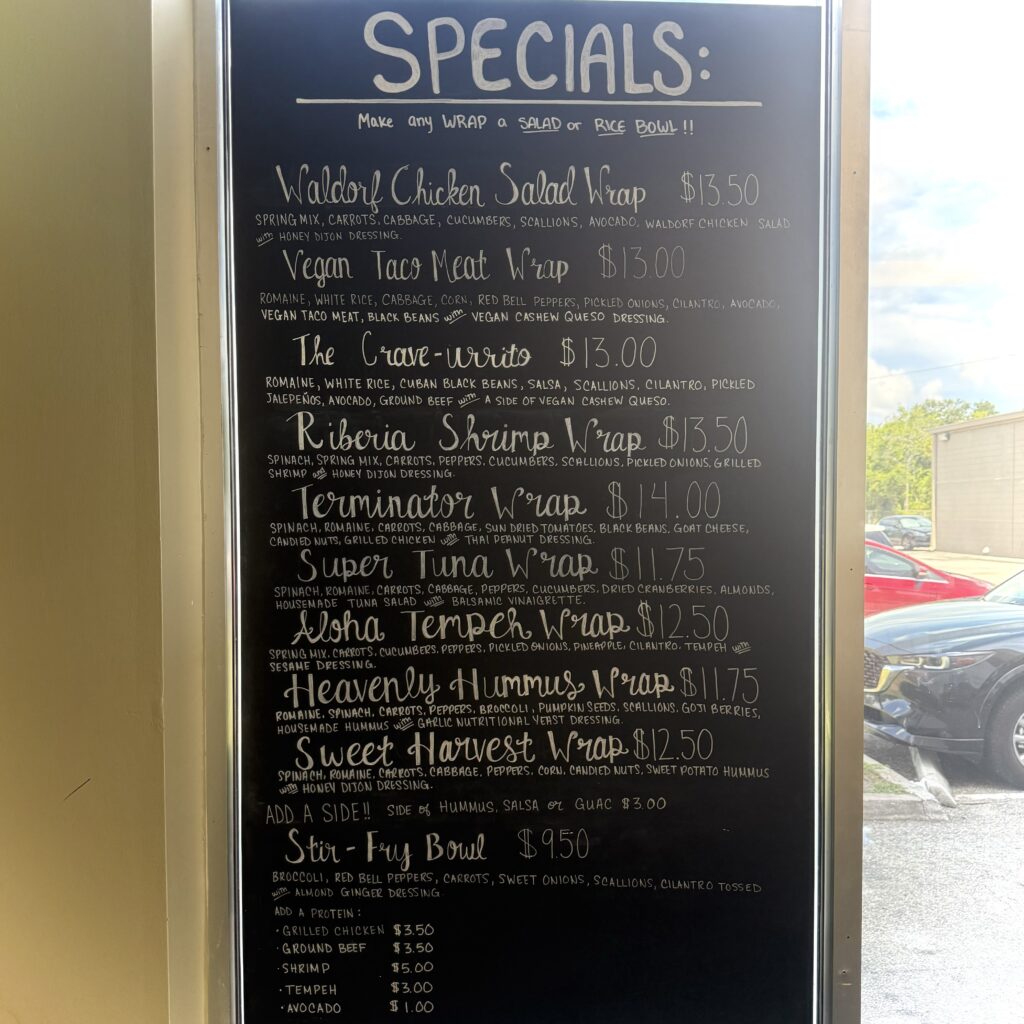 SPECIALS:
Make any WRAP a SALAD or RICE BOWL!!
Waldorf Chicken Salad Wrap $13.50
SPRING MIX, CARROTS, CABBAGE, CUCUMBERS, SCALLIONS, AVOCADO, WALDORF CHICKEN SALAD
with HONEY DIJON DRESSING.
Vegan Taco Meat Wrap $13.00
ROMAINE, WHITE RICE, CABBAGE, CORN, RED BELL PEPPERS, PICKLED ONIONS, CILANTRO, AVOCADO,
VEGAN TACO MEAT, BLACK BEANS with VEGAN CASHEW QUESO DRESSING.
The Crave-urrito $13.00
ROMAINE, WHITE RICE, CUBAN BLACK BEANS, SALSA, SCALLIONS, CILANTRO, PICKLED
JALEPEÑOS, AVOCADO, GROUND BEEF with A SIDE OF VEGAN CASHEW QUESO.
Riberia Shrimp Wrap $13.50
SPINACH, SPRING MIX, CARROTS, PEPPERS, CUCUMBERS, SCALLIONS, PICKLED ONIONS, GRILLED
SHRIMP and HONEY DIJON DRESSING.
Terminator Wrap $14.00
SPINACH, ROMAINE, CARROTS, CABBAGE, SUN DRIED TOMATOES, BLACK BEANS, GOAT CHEESE,
CANDIED NUTS, GRILLED CHICKEN with THAI PEANUT DRESSING.
Super Tuna Wrap $11.75
SPINACH, ROMAINE, CARROTS, CABBAGE, PEPPERS, CUCUMBERS, DRIED CRANBERRIES, ALMONDS,
HOUSEMADE TUNA SALAD with BALSAMIC VINAIGRETTE.
Aloha Tempeh Wrap $12.50
SPRING MIX, CARROTS, CUCUMBERS, PEPPERS, PICKLED ONIONS, PINEAPPLE, CILANTRO, TEMPEH with
SESAME DRESSING.
Heavenly Hummus Wrap $11.75
ROMAINE, SPINACH, CARROTS, PEPPERS, BROCCOLI, PUMPKIN SEEDS, SCALLIONS, GOJI BERRIES,
HOUSEMADE HUMMUS with GARLIC NUTRITIONAL YEAST DRESSING.
Sweet Harvest Wrap $12.50
SPINACH, ROMAINE, CARROTS, CABBAGE, PEPPERS, CORN, CANDIED NUTS, SWEET POTATO HUMMUS
with HONEY DIJON DRESSING.
ADD A SIDE!! SIDE of HUMMUS, SALSA or GUAC $3.00
Stir-Fry Bowl $9.50
BROCCOLI, RED BELL PEPPERS, CARROTS, SWEET ONIONS, SCALLIONS, CILANTRO TOSSED
with ALMOND GINGER DRESSING.
ADD A PROTEIN:
·GRILLED CHICKEN $3.50
·GROUND BEEF $3.50
·SHRIMP $5.00
·TEMPEH $3.00
·AVOCADO $1.00